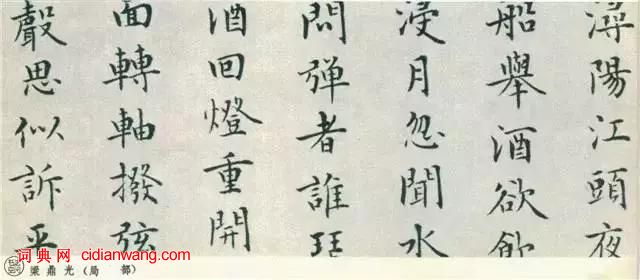 潯陽江頭夜
船舉酒欲飲
浸月忽聞水
問弹者誰
酒回燈重開
面轉軸撥弦
聲思似訴平
词典网 cidianwang.com
梁鼎光(局 部)